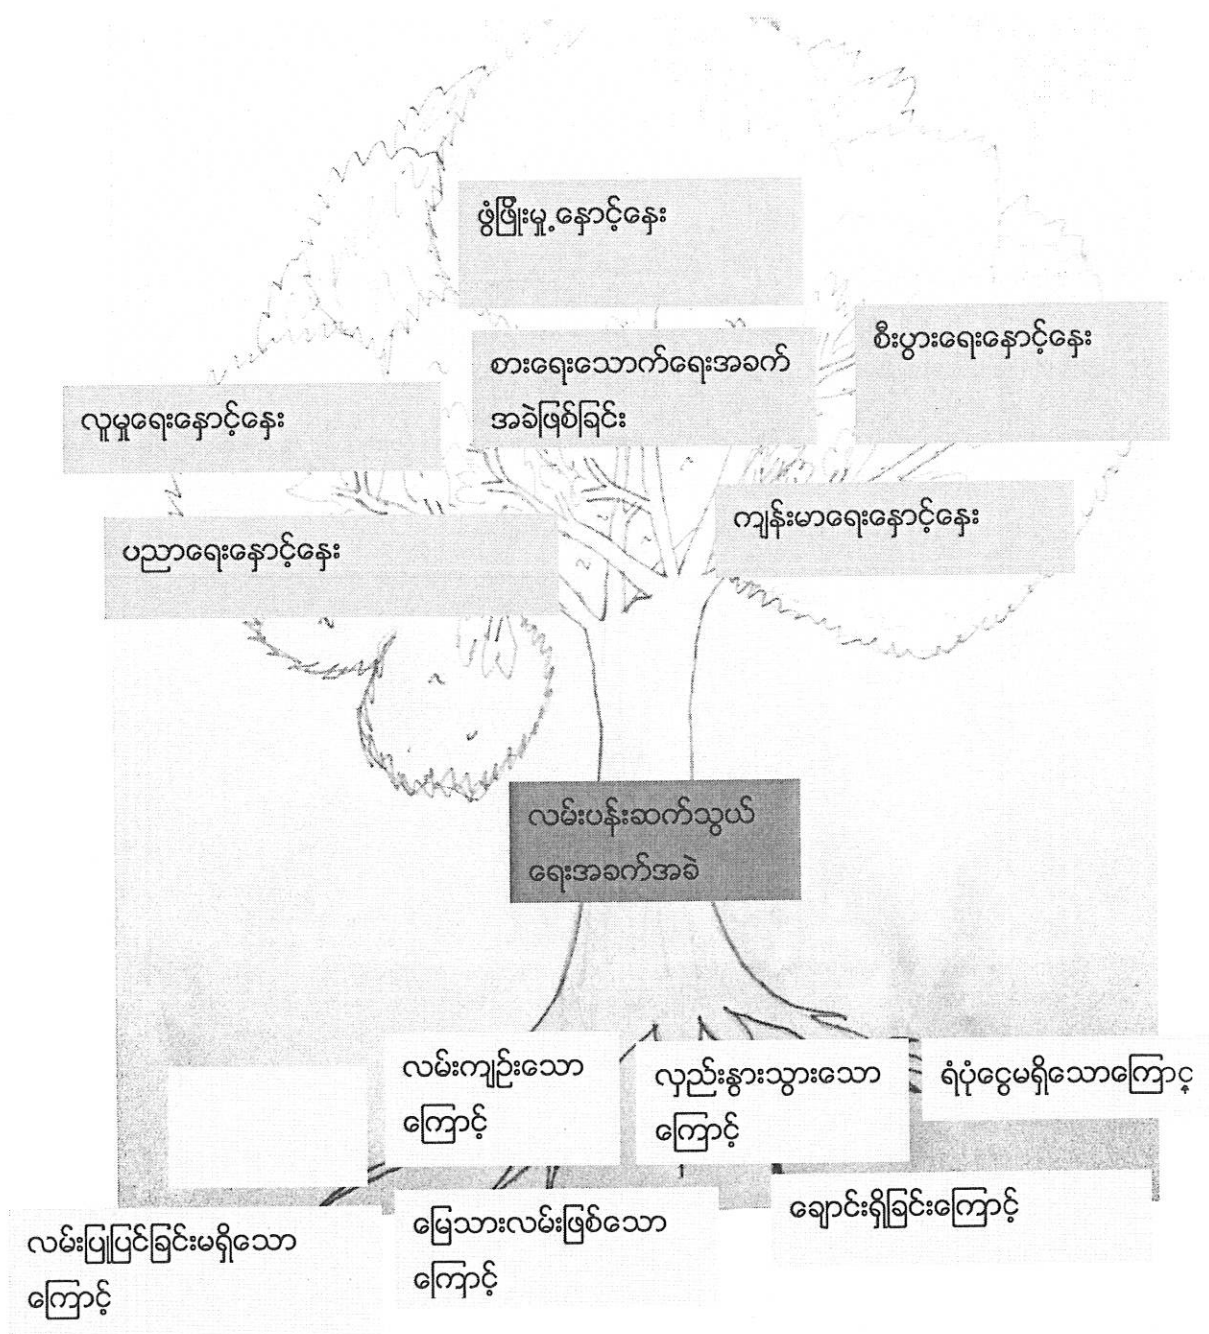 ဖွံဖြိုးမှု့နှောင့်နှေး
စီးပွားရေးနှောင့်နှေး
စားရေးသောက်ရေးအခက်
အခဲဖြစ်ခြင်း
လူမှုရေးနှောင့်နှေး
ကျန်းမာရေးနှောင့်နှေး
ပညာရေးနှောင့်နှေး
လမ်းပန်းဆက်သွယ်
ရေးအခက်အခဲ
လမ်းကျဉ်းသော
ကြောင့်
လှည်းနွားသွားသော
ကြောင့်
ရံပုံငွေမရှိသောကြောင့
ချောင်းရှိခြင်းကြောင့်
မြေသားလမ်းဖြစ်သော
ကြောင့်
လမ်းပြုပြင်ခြင်းမရှိသော
ကြောင့်